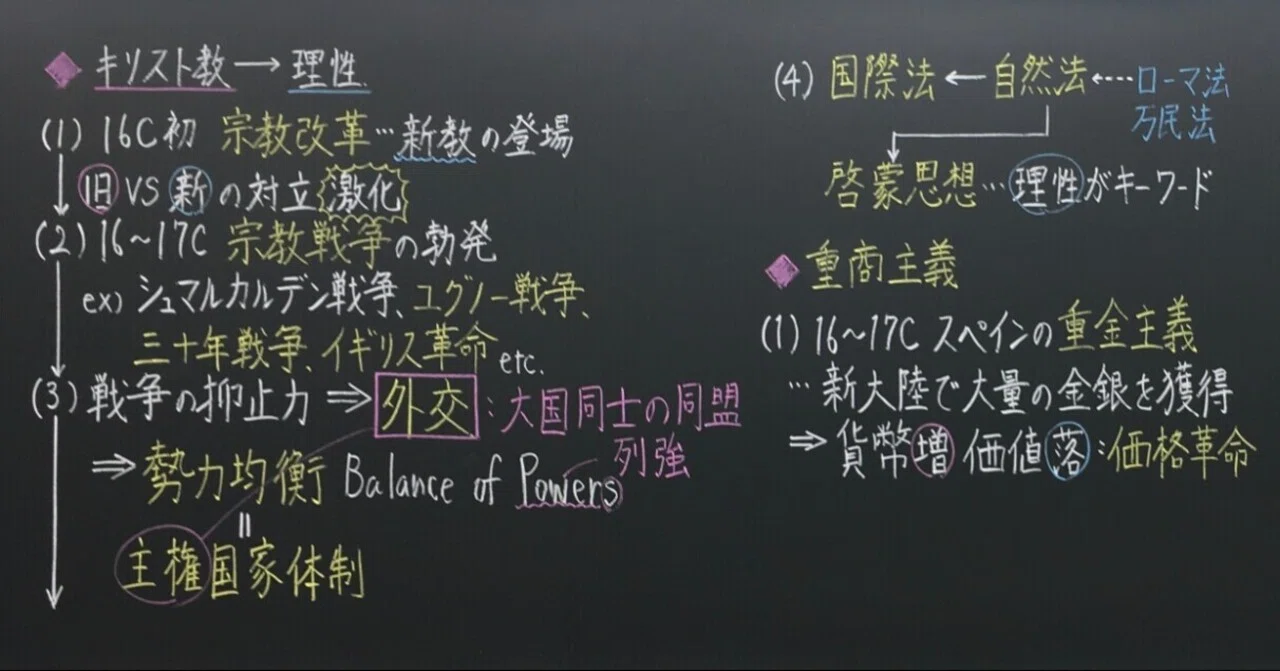 ◆ キリスト教 → 理性
(1) 16C初 宗教改革…新教の登場
旧 VS 新 の対立 激化
(2) 16~17C 宗教戦争の勃発
ex) シュマルカルデン戦争、ユグノー戦争、
三十年戦争、イギリス革命 etc.
(3) 戦争の抑止力 ⇒ 外交 : 大国同士の同盟
列強
⇒ 勢力均衡 Balance of Powers
=
主権国家体制
(4) 国際法 ← 自然法 ← ローマ法
万民法
啓蒙思想…理性がキーワード
◆ 重商主義
(1) 16~17C スペインの重金主義
…新大陸で大量の金銀を獲得
⇒ 貨幣増 価値落 : 価格革命